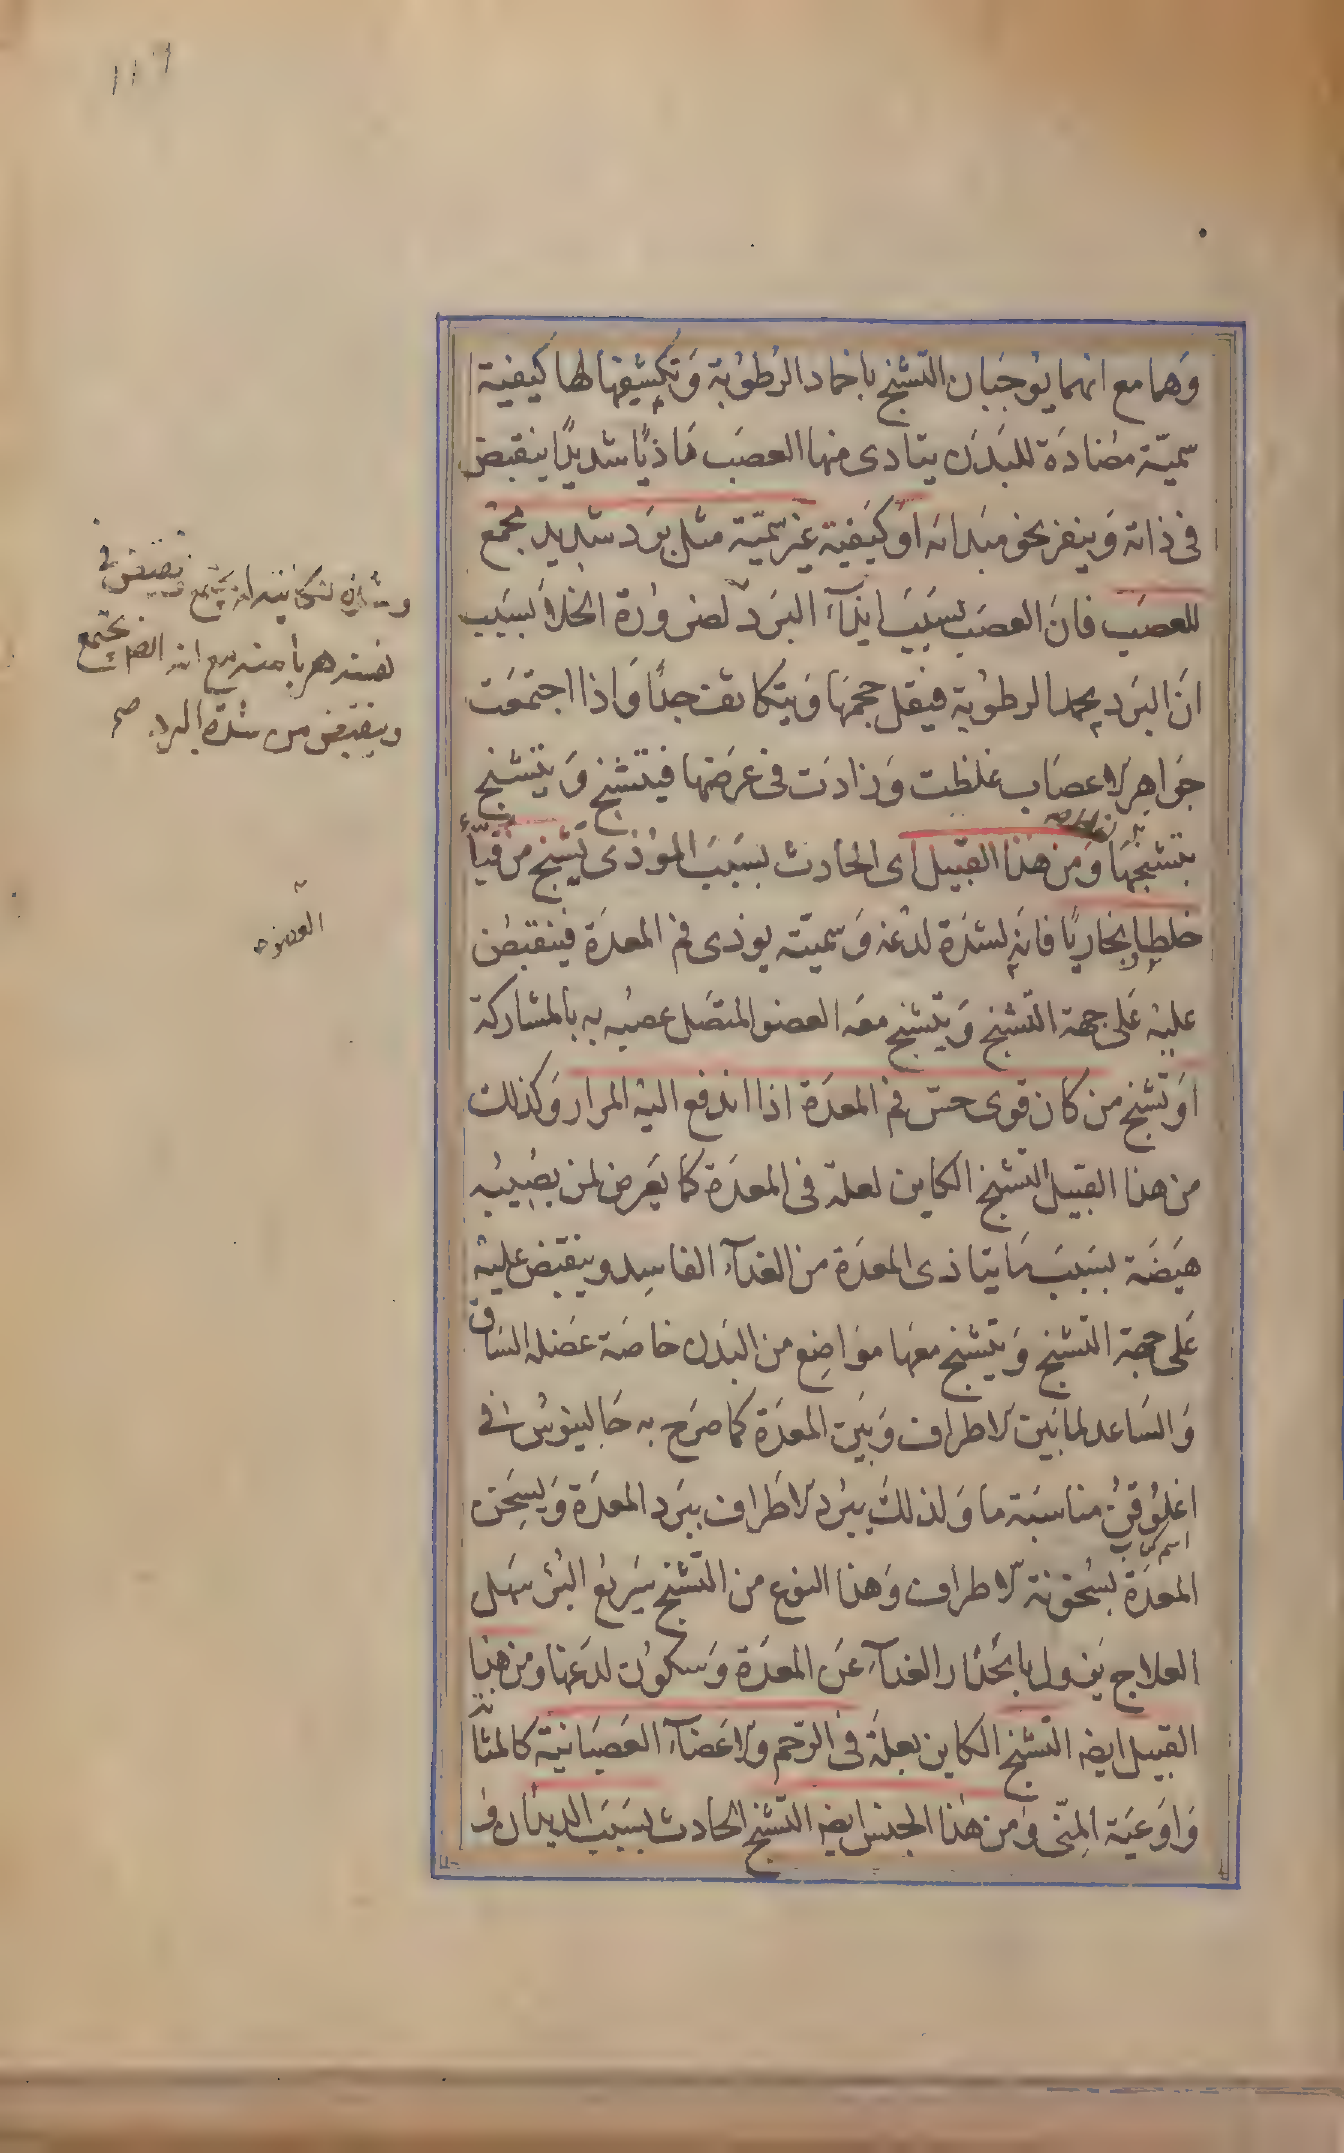 وَهما مع انهما يوجبان التشنج باخماد الرطوبة وَتكشيفها لها كيفية
سميّة مضادَة للبدَن يتاذى منها العصَب تاذيًا شديدًا ينقبض
فى ذاته وَينفر نحو مبدائه اوَ كيَفية غير سميّة مثل برَد شديد يجمع
للعصَب فانَ العصَب بسَبَب ايذآء البرَد لضرورة الخلاَ بسَبَب
انَ البرَد يجمد الرطوبة فيقل حجمهَا وَيتكاثف جدًا وَاذا اجتمعَت
جَواهر الاعصَاب غلظت وَزادَت فى عرَضها فيتشنج وَيتشنج
بتشنجهَا وَمن هذا القبيل اى الحادث بسَبَبَ الموذى تشنج من قيآء
خلطا زنجاريًا فانه لشدَة لدغه وَسميته يوذى فم المعدَة فينقبض
عليه عَلى جهة التشنج وَيتشنج معَه العضو المتصَل عصبه به بالمشاركة
اوَ تشنج من كان قوى حسّ فم المعدَة اذا اندفع اليه المرار وَكذلك
من هذا القبيل التشنج الكاين لعلة فى المعدَة كما يعَرض لمن يصيبه
هيَضَة بسَبَب مَا يتاذى المعدَة من الغذآء الفاسِد وينقبض عليه
عَلى جهة التشنج وَيتشنج معهَا موَاضِع من البَدن خاصَة عَضله السَاق
وَالسَاعد لما بَين الاطراف وَبَين المعدَة كما صرَح به جَالينوس فى
اغلوُقن مناسَبة ما وَلذلك يبرد الاطَراف ببرَد المعدَة وَيسخن
اسم كتاب
المعدَة بسُخونة الاطراف وَهذا النوع من التشنج سَريعُ البُرء سَهل
العلاج يَزول بانحَدار الغذآء عَن المعدَة وَسكون لدغها ومن هذا
القبيل ايضه التشنج الكاين بعلة فى الرَحم والاعَضآء العَصبَانية كالمثانة
وَاوَعيَة المنّى وَمن هذا الجنس ايضه التشنج الحادث بسَبَب الديدان فى
نفسه هربا منه مع انه ايضا يجتمع
وينقبض من شدة البرد صح
العضو